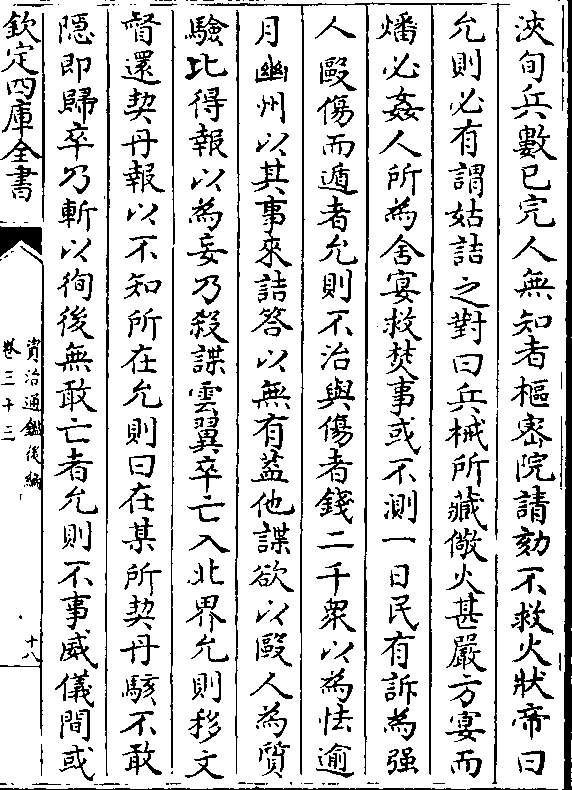 浹旬兵數已完人無知者樞宻院請劾不救火狀帝曰
允則必有謂姑詰之對曰兵械所藏儆火甚嚴方宴而
燔必姦人所為舍宴救焚事或不測一日民有訴為强
人毆傷而遁者允則不治與傷者錢二千衆以為怯逾
月幽州以其事來詰答以無有葢他諜欲以毆人為質
驗比得報以為妄乃殺諜雲翼卒亡入北界允則移文
督還契丹報以不知所在允則曰在某所契丹駭不敢
隠即歸卒乃斬以徇後無敢亡者允則不事威儀間或
欽定四庫全書
資治通鑑後編
卷三十三
十八